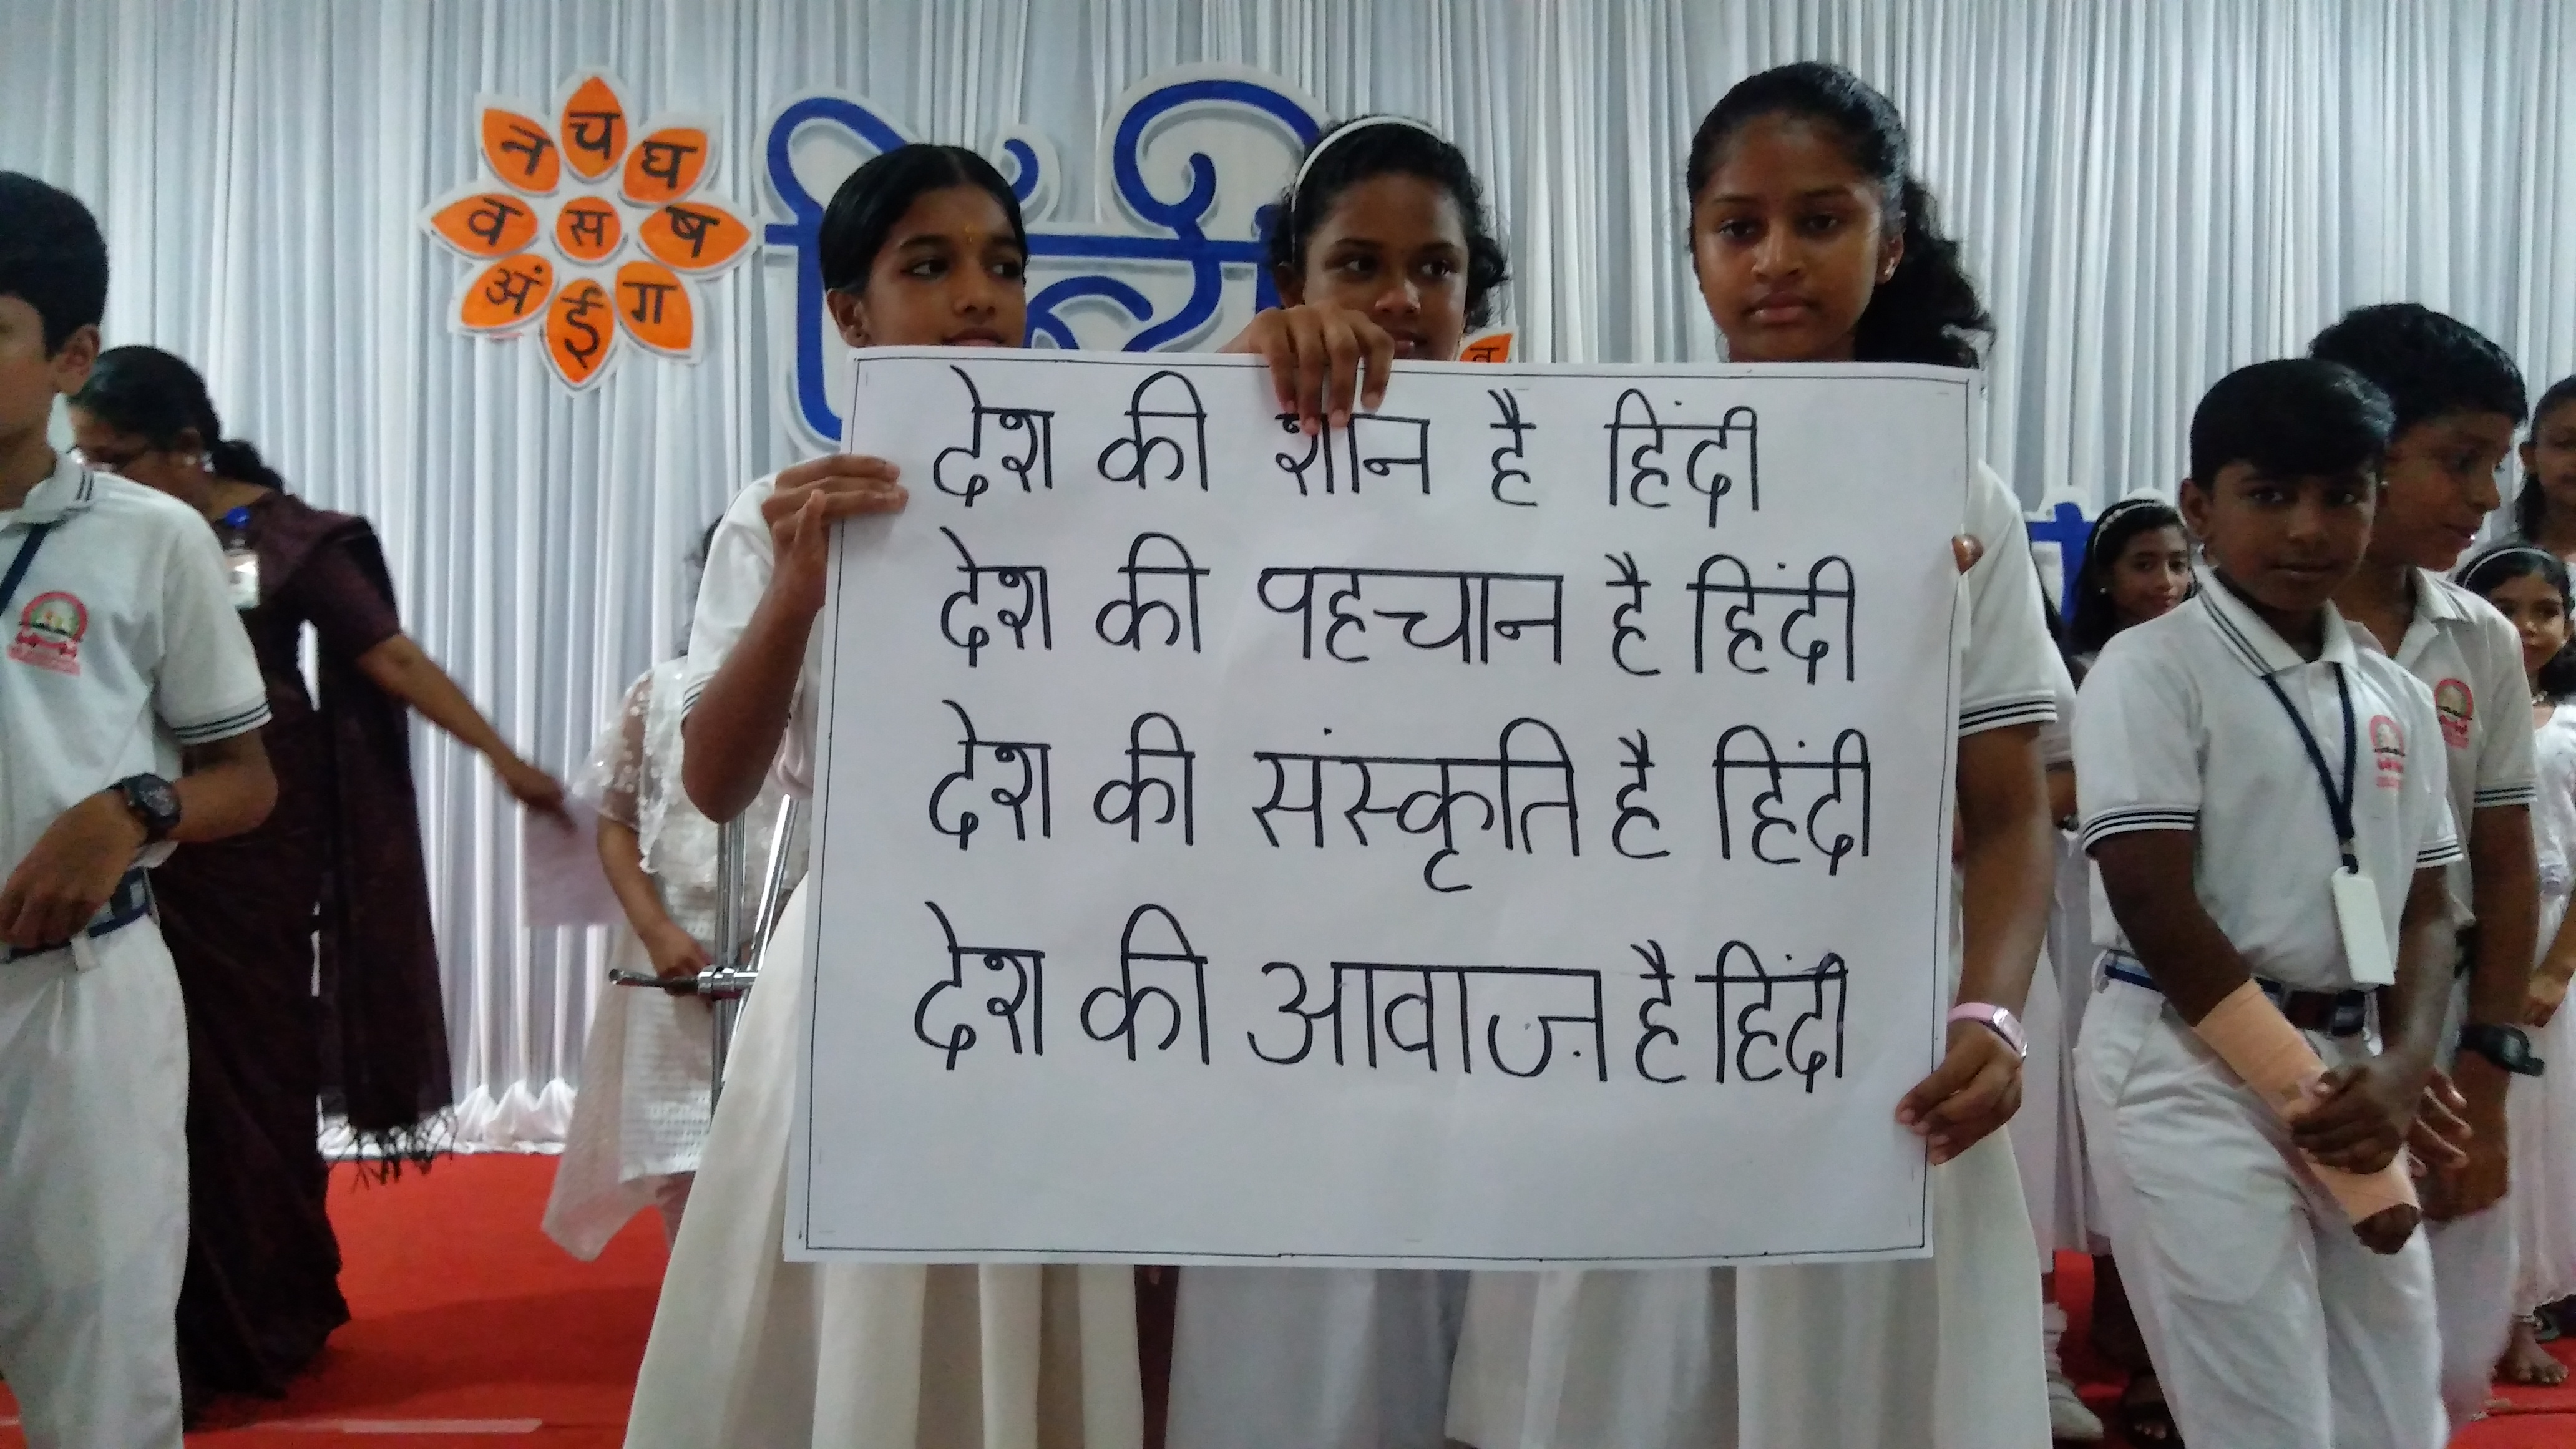 च
न
घ
व
स
ष
अं
ई
ग
हिंदी
व
देश की शान है हिंदी
देश की पहचान है हिंदी
देश की संस्कृति है हिंदी
देश की आवाज़ है हिंदी